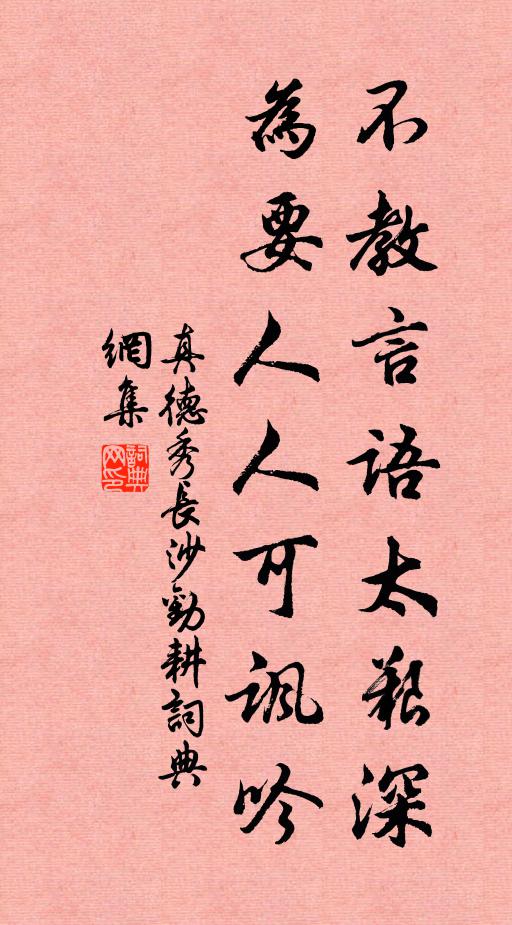 不教言語太艱深
為要人人可諷吟
真德秀長沙勸耕詞典
網集
詞典
网印